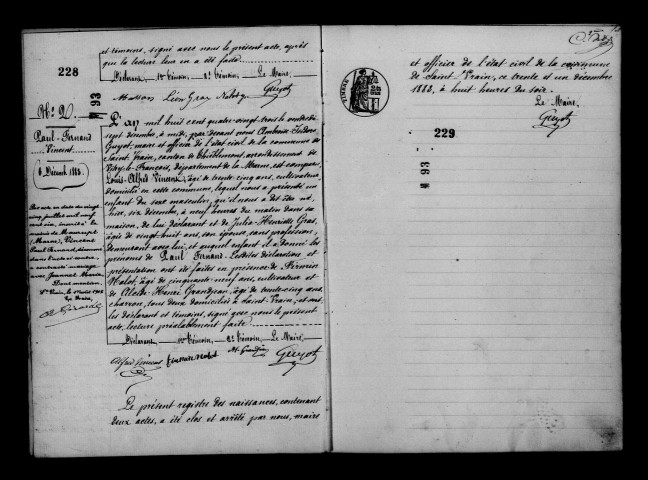 et témoins, signé avec nous le présent acte, après
que la lecture leur en a été faite
Déclarant, 1er témoin, 2e témoin, Le Maire,
Masson Léon Gras Guyot
228
N° 2
93
Paul-Fernand
Vincent
6 Décembre 1883.
Par acte en date du vingt
cinq juillet mil neuf
cent six, inscrit à la
mairie de Maurupt
(Marne), Vincent
Paul Fernand, dénommé
dans l'acte ci-contre,
a contracté mariage
avec Jeannet Marie
Dont mention.
Le Maire,
L'an mil huit cent quatre-vingt-trois le
sept décembre, à midi, par devant nous Ambroise Isidore
Guyot, maire et officier de l'état civil de la commune de
Saint-Vrain, canton de Thiéblemont, arrondissement de
Vitry-le-François, département de la Marne, est comparu
Louis-Alfred Vincent, âgé de trente-cinq ans, cultivateur,
domicilié en cette commune, lequel nous a présenté un
enfant du sexe masculin, qu'il nous a dit être né
hier, six décembre, à neuf heures du matin dans sa
maison, de lui déclarant et de Julia-Henriette Gras,
âgée de vingt-huit ans, son épouse, sans profession,
demeurant avec lui, et auquel enfant il a donné les
prénoms de Paul Fernand. Lesdites déclaration et
présentation ont été faites en présence de Firmin
Nalot, âgé de cinquante-neuf ans, cultivateur et
de Henri Grandjean, âgé de trente-cinq ans,
charron, tous deux domiciliés à Saint-Vrain, et ont
les déclarant et témoins, signé avec nous le présent
acte, lecture préalablement faite
Déclarant, 1er témoin, 2e témoin, Le Maire,
Alfred Vincent Guyot
Le présent registre des naissances, contenant
deux actes, a été clos et arrêté par nous, maire
TIMBRE
et officier de l'état civil de la commune
de Saint-Vrain, ce trente et un décembre
1883, à huit heures du soir.
Le Maire,
Guyot
229
93